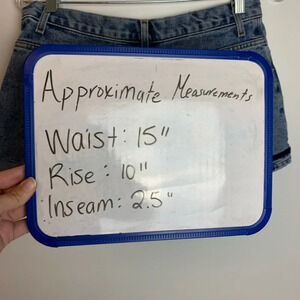 Approximate Measurements
Waist: 15"
Rise: 10"
Inseam: 2.5"